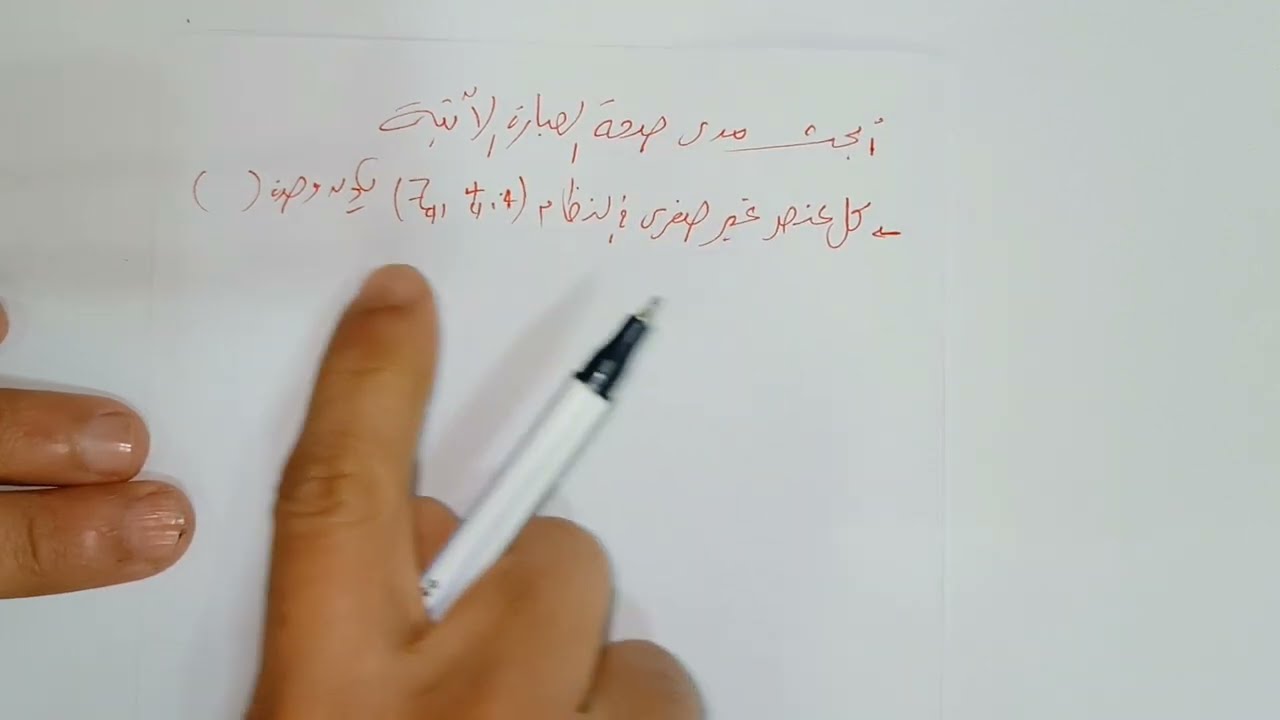 أبحث مدى صحة العبارة الآتية
← كل عنصر غير صفري في النظام (Z₄, +₄, ·₄) يكون وحدة ( )